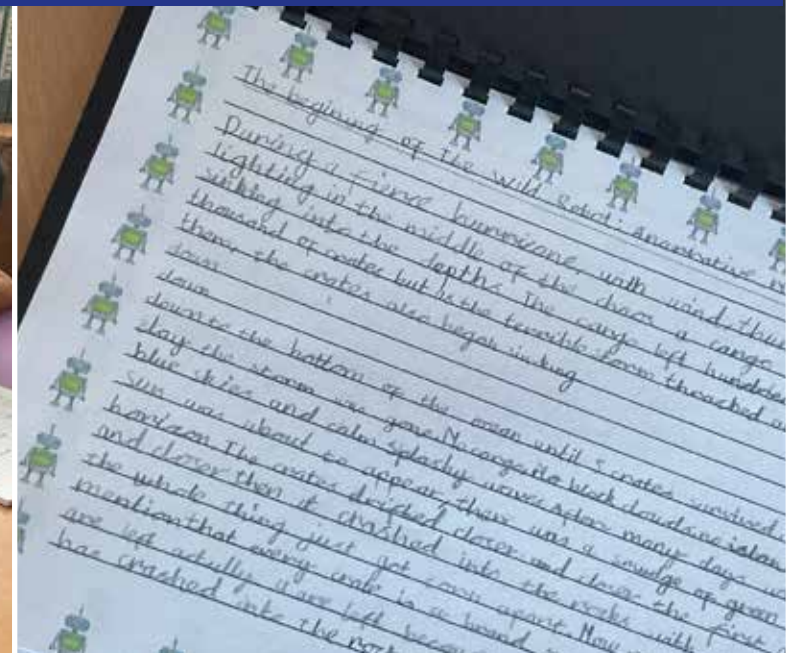 The begining of the wild Robot: Anarrative r
During a fierce hurricane, with wind, thun
lighting in the middle of the chaos a cargo
sinking into the depths. The cargo left hundder
thousand of crates but as the terrible storm thrached a
them the crates also began sinking
down
down
down to the bottom of the ocean until 5 crates survived.
day the storm was gone. No cargo, No black clouds, no islan
blue skies and calm splashy waves after many days
sun was about to appear, there was a smudge of green
horizon The crates drifted closer and closer the first
and closer then it crashed into the rocks with
the whole thing just got torn apart. Now
mention that every crate is so
are left actully 4 are left becau
has crashed into the rock